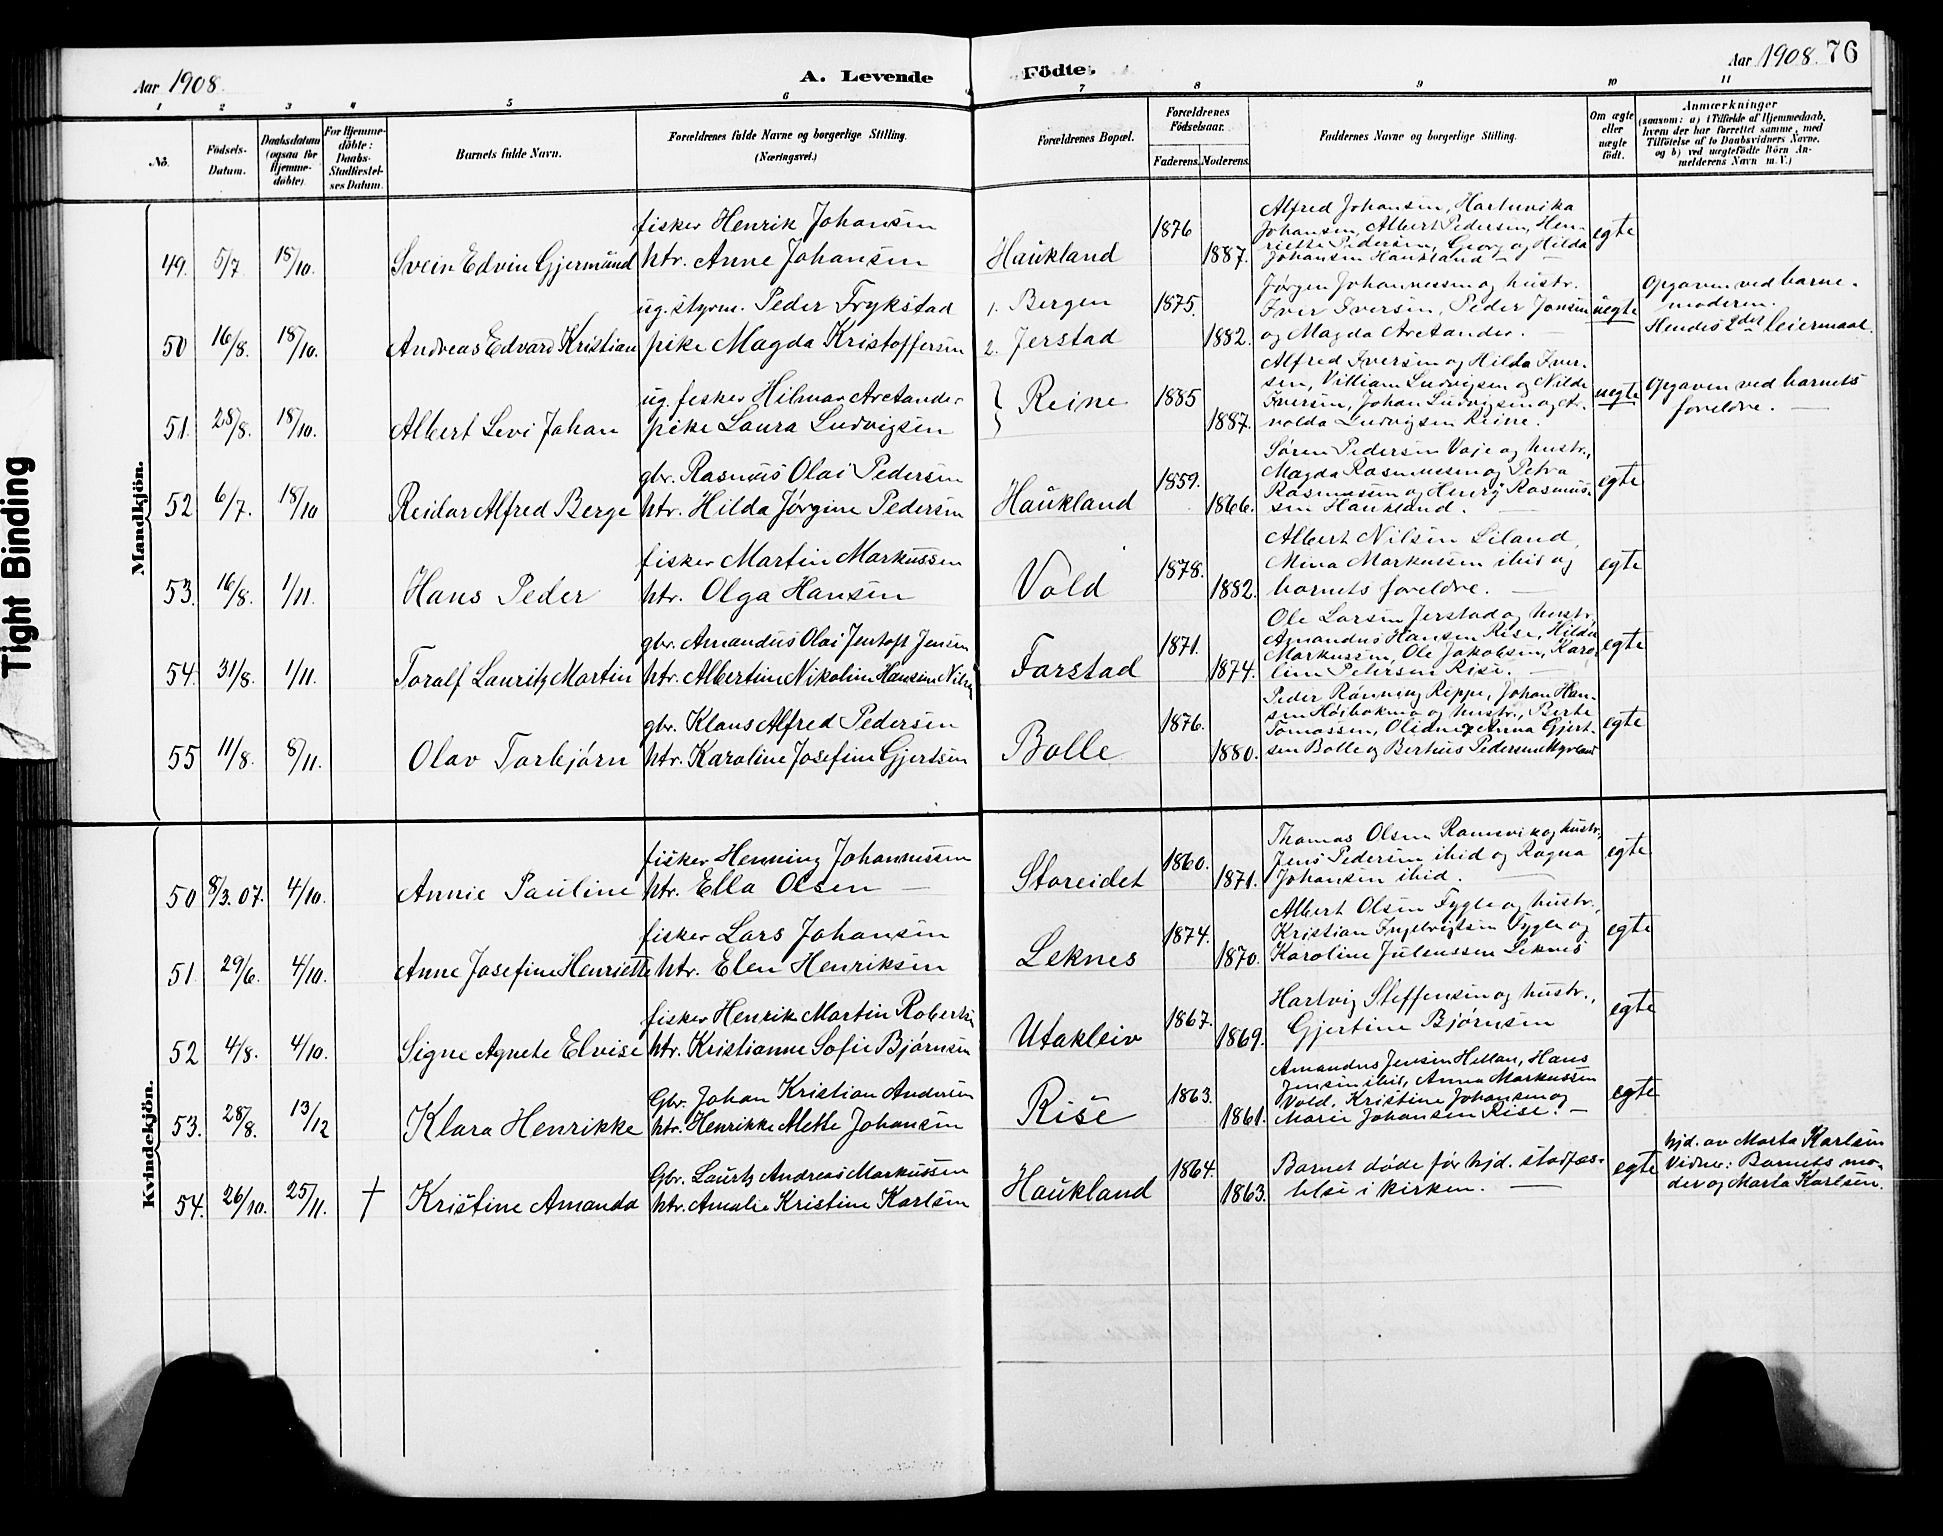 Aar 1908.
A. Levende
Födte.
Aar 1908. 76
1 2 3 4 5 6 7 8 9 10 11
No.
Födsels-Datum.
Daabsdatum (ogsaa for Hjemme-döbte).
For Hjemme-döbte: Daabs-Stadfæstel-ses Datum.
Barnets fulde Navn.
Forældrenes fulde Navne og borgerlige Stilling.
(Næringsvei.)
Forældrenes Bopæl.
Forældrenes Födselsaar.
Faderens. Moderens.
Faddernes Navne og borgerlige Stilling.
Om ægte eller uægte födt.
Anmærkninger
(saasom: a) i Tilfælde af Hjemmedaab,
hvem der har forrettet samme, med
Tilföielse af to Daabsvidners Navne,
og b) ved uægtefödte Börn An-
melderens Navn m. V.)
Tight Binding
Mandkjön.
49. 5/7 18/10. Svein Edvin Gjermund
fisker Henrik Johansen
htr. Anne Johansen
Haukland 1876 1887.
Alfred Johansen, Hartvika
Johansen, Albert Pedersen, Hen-
riette Pedersen, Georg og Hilda
Johansen Haukland
egte
50 16/8. 18/10. Andreas Edvard Kristian
ug. styrm. Peder Frykstad
pike Magda Kristoffersen
1. Bergen
2. Jerstad
1875. 1882.
Jørgen Johannessen og hustr.
Iver Iversen, Peder Jonsen
og Magda Aretander.
uegte
Opgaven ved barne-
moderen.
Hendes 2det leiermaal.
51. 28/8. 18/10. Albert Levi Johan
ug. fisker Hilmar Aretander
pike Laura Ludvigsen
Reine 1885 1887.
Alfred Iversen og Hilda Iver-
sen, Villiam Ludvigsen og Nilde
Iversen, Johan Ludvigsen og Ar-
nolda Ludvigsen Reine.
uegte
Opgaven ved barnets
foreldre.
52 6/7. 18/10 Reidar Alfred Berge
gbr. Rasmus Olai Pedersen
htr. Hilda Jørgine Pedersen
Haukland 1859. 1866.
Søren Pedersen Vaje og hustr.,
Magda Rasmussen og Petra
Rasmussen og Henry Rasmus-
sen Haukland.
egte
53. 16/8. 1/11. Hans Peder
fisker Martin Markussen
htr. Olga Hansen
Vold 1878. 1882.
Albert Nilsen Liland,
Mina Markussen ibid og
barnets foreldre.
egte
54. 31/8. 1/11. Toralf Lauritz Martin
gbr. Amandus Olai Jentoft Jensen
htr. Albertine Nikoline Hansine
Farstad 1871. 1874.
Ole Larsen Jerstad og hustr.,
Amandus Hansen Rise, Hilda
Markussen, Ole Jakobsen, Karo-
line Petersen Rise.
egte
55 11/8. 8/11. Olav Torbjørn
gbr. Klaus Alfred Pedersen
htr. Karoline Josefine Gjertsen
Bolle 1876. 1880.
Peder Rønning Reppe, Johan Han-
sen og hustr., Berte
Tomassen, Oline og Anna Gjert-
sen Bolle og Berhus Pedersen
egte
Kvindekjön.
50 8/3.07. 4/10. Annie Pauline
fisker Henning Johannessen
htr. Ella Olsen
Storeidet 1860. 1871.
Thomas Olsen Ramsvik og hustr.,
Jens Pedersen ibid og Ragna
Johansen ibid.
egte
51. 29/6. 4/10. Anne Josefine Henriette
fisker Lars Johansen
htr. Elen Henriksen
Leknes 1874. 1870.
Albert Olsen Fygle og hustr.,
Kristian Ingebrigtsen Fygle og
Karoline Julenssen Leknes
egte
52 4/8. 4/10. Signe Agnete Elvise
fisker Henrik Martin Robertsen
htr. Kristianne Sofie Bjørnsen
Utakleiv 1867. 1869.
Hartvig Steffensen og hustr.,
Gjertine Bjørnsen
egte
53. 28/8. 13/12 Klara Henrikke
Gbr. Johan Kristian Andersen
htr. Henrikke Mette Johansen
Rise 1863. 1861.
Amandus Jensen Hellan, Hans
Jensen ibid, Anna Markussen
Vold, Kristine Johansen og
Marie Johansen Rise.
egte
54. 26/10. 25/11. † Kristine Amanda
Gbr. Lauritz Andreas Markussen
htr. Amalie Kristine Karlsen
Haukland 1864. 1863.
Barnet døde før hjd. stadfæs-
telse i kirken.
egte
hjd. av Marta Karlsen
Vidner: Barnets mo-
der og Marta Karlsen.